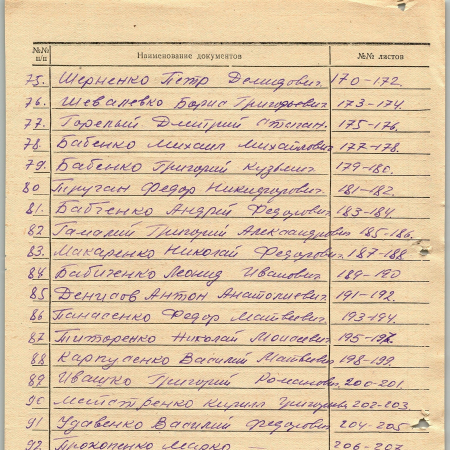 №№ п/п Наименование документов №№ листов
75. Шерненко Петр Демидович 170-172.
76. Шевалевко Борис Григорьевич 173-174.
77. Горелый Дмитрий Степан. 175-176.
78. Бабенко Михаил Михайлович 177-178.
79. Бабенко Григорий Кузьмич 179-180.
80 Тручан Федор Никифорович 181-182.
81. Бабченко Андрій Федорович 183-184
82 Гамалий Григорий Александрович 185-186.
83. Макаренко Николай Федорович 187-188
84 Бабиченко Леонид Иванович 189-190
85 Денисов Антон Анатолиевич 191-192.
86 Панасенко Федор Матвеевич 193-194.
87 Титоренко Николай Моисеевич 195-197.
88 Карпусенко Василий Матвеевич 198-199.
89 Ивашко Григорий Романович 200-201.
90 Кирилл Григорьевич 202-203
91 Удавенко Василий Федорович 204-205
92 Прохопенко Марко — 206-207